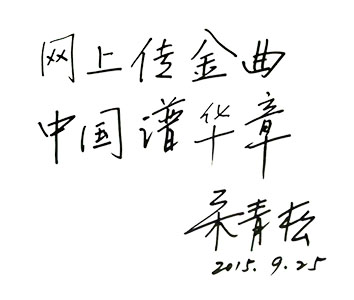 网上传金曲
中国谱华章
宋青松
2015.9.25